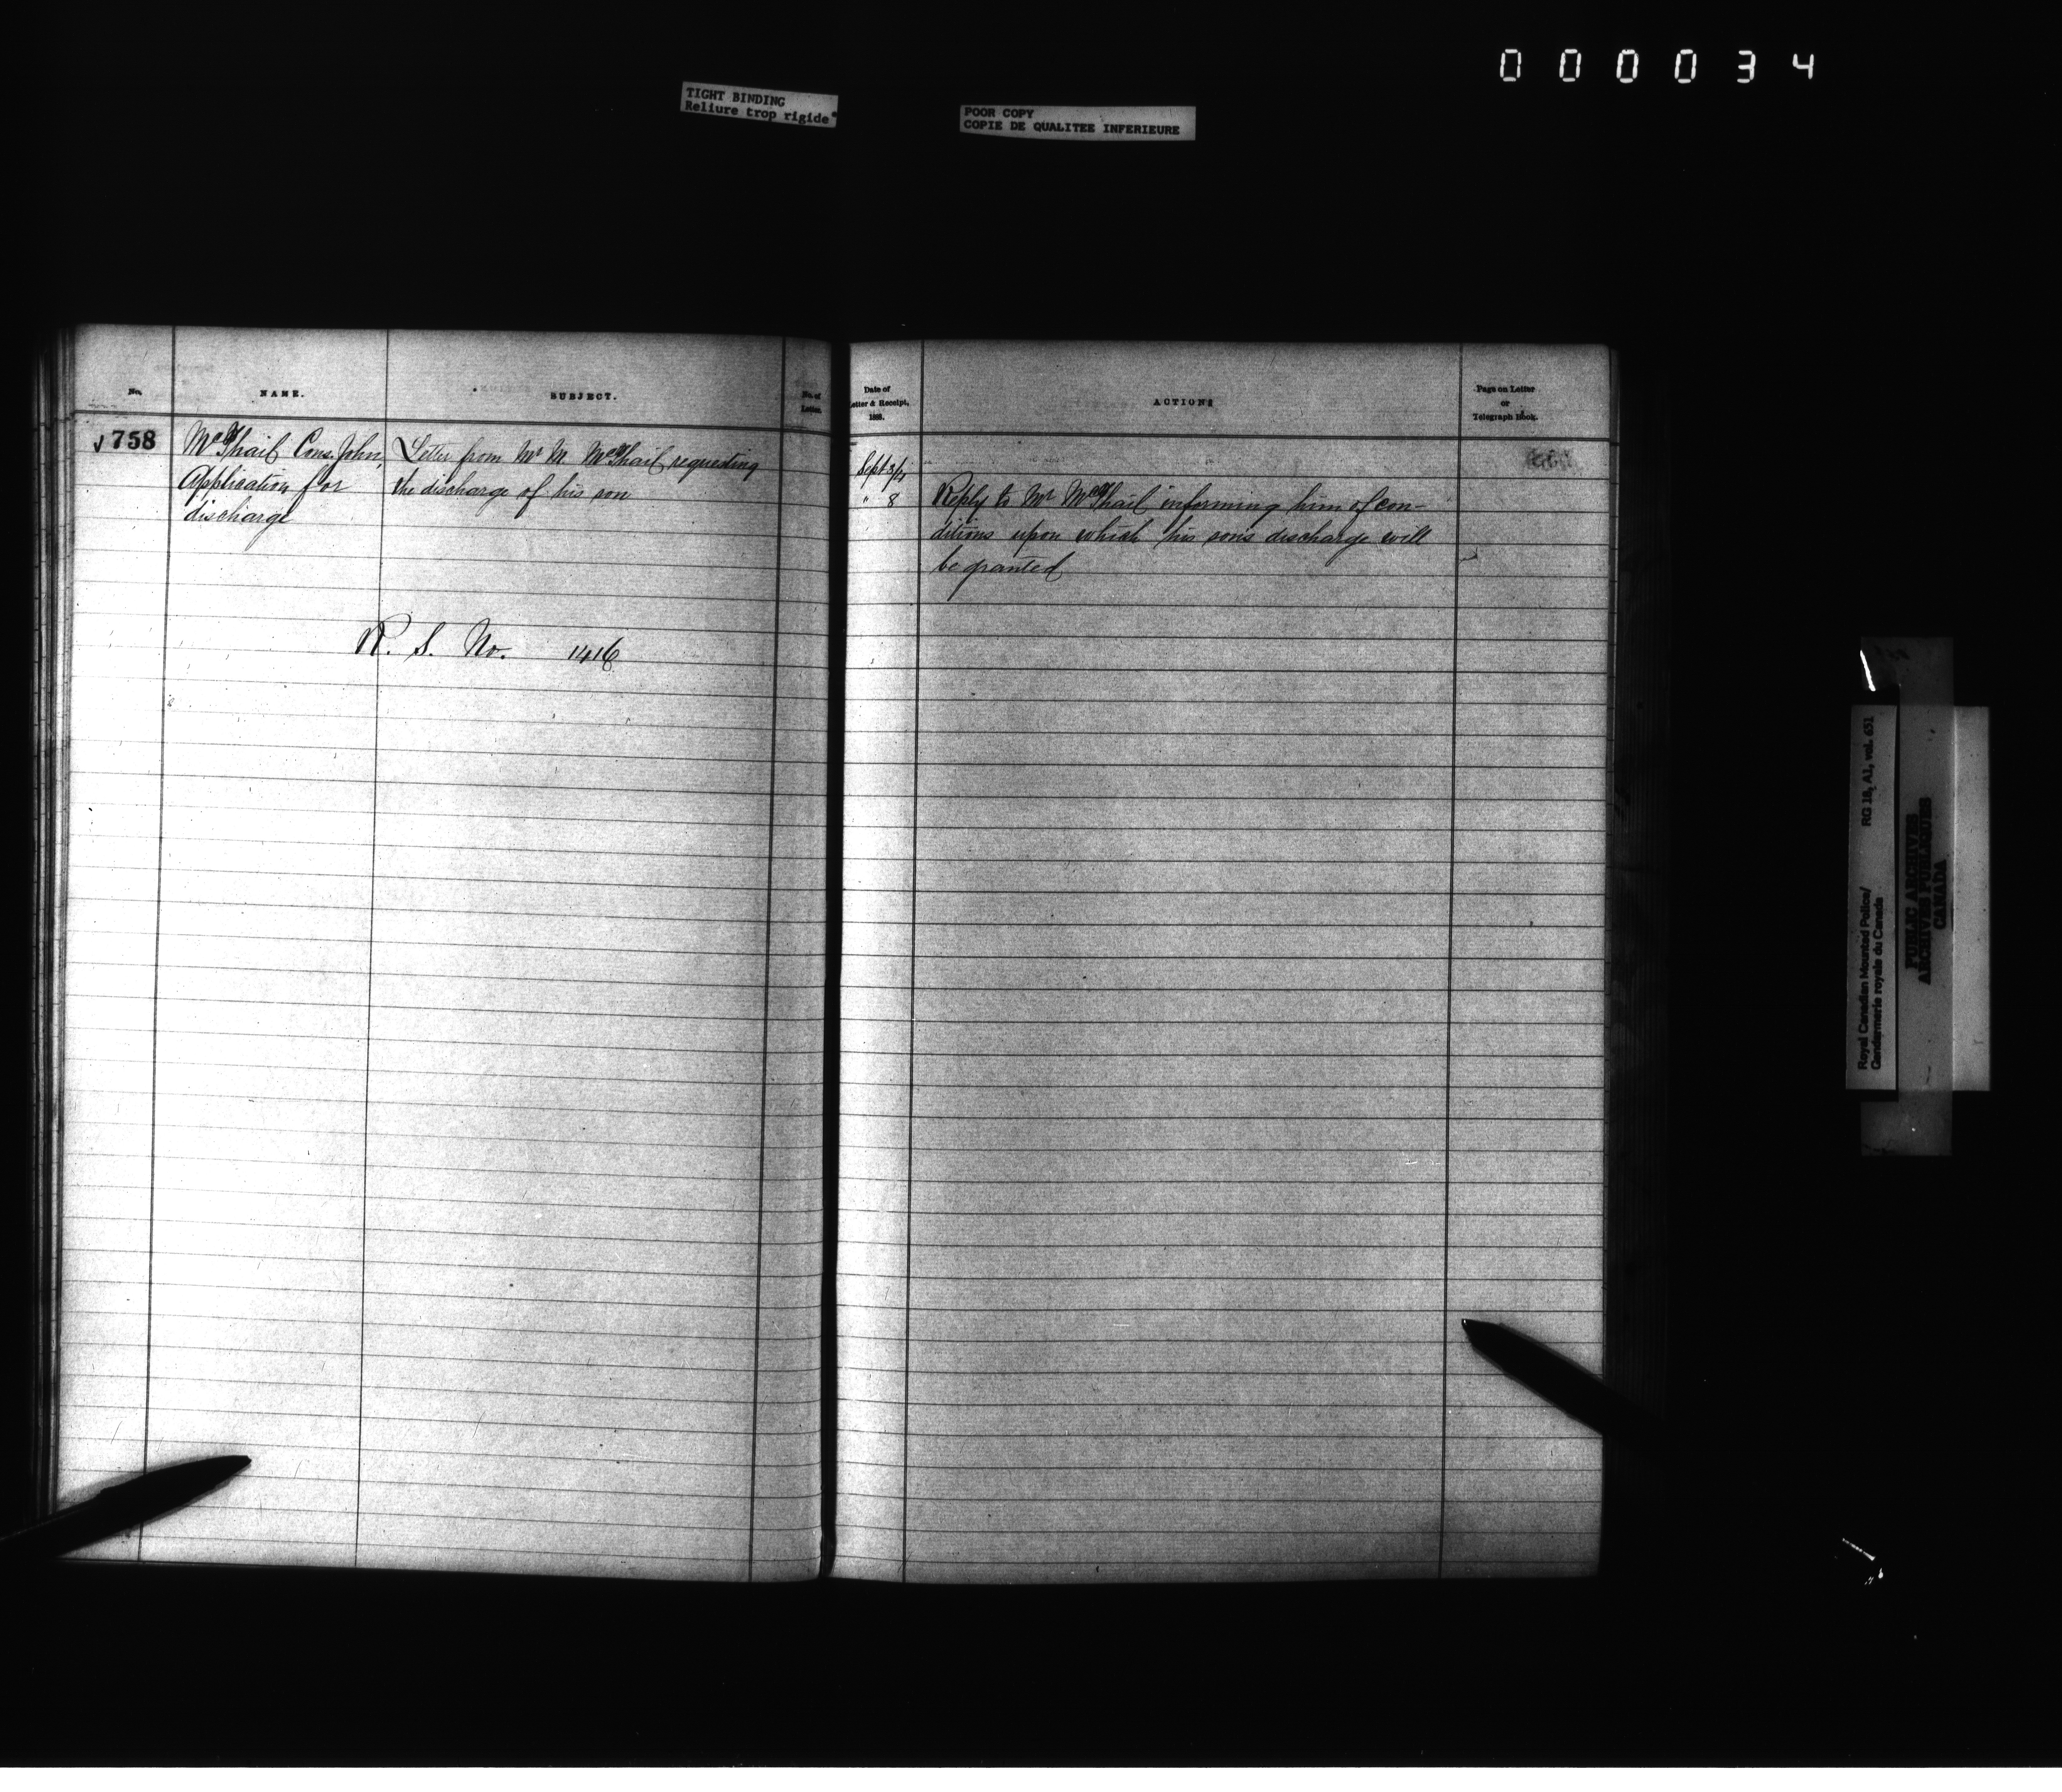 000034
TIGHT BINDING
Reliure trop rigide
POOR COPY
COPIE DE QUALITEE INFERIEURE
No.
NAME.
SUBJECT.
No. of
Letter.
Date of
Letter & Receipt,
188
ACTION
Page on Letter
or
Telegraph Book.
758
McPhail Cons. John,
Application for
discharge
Letter from Mr M. McPhail requesting
the discharge of his son
R. S. No. 1416
Sept 3/4
" 8
Reply to Mr McPhail informing him of con-
ditions upon which his son's discharge will
be granted
Royal Canadian Mounted Police/
Gendarmerie royale du Canada
RG 18, A1, vol. 651
PUBLIC ARCHIVES
ARCHIVES PUBLIQUES
CANADA